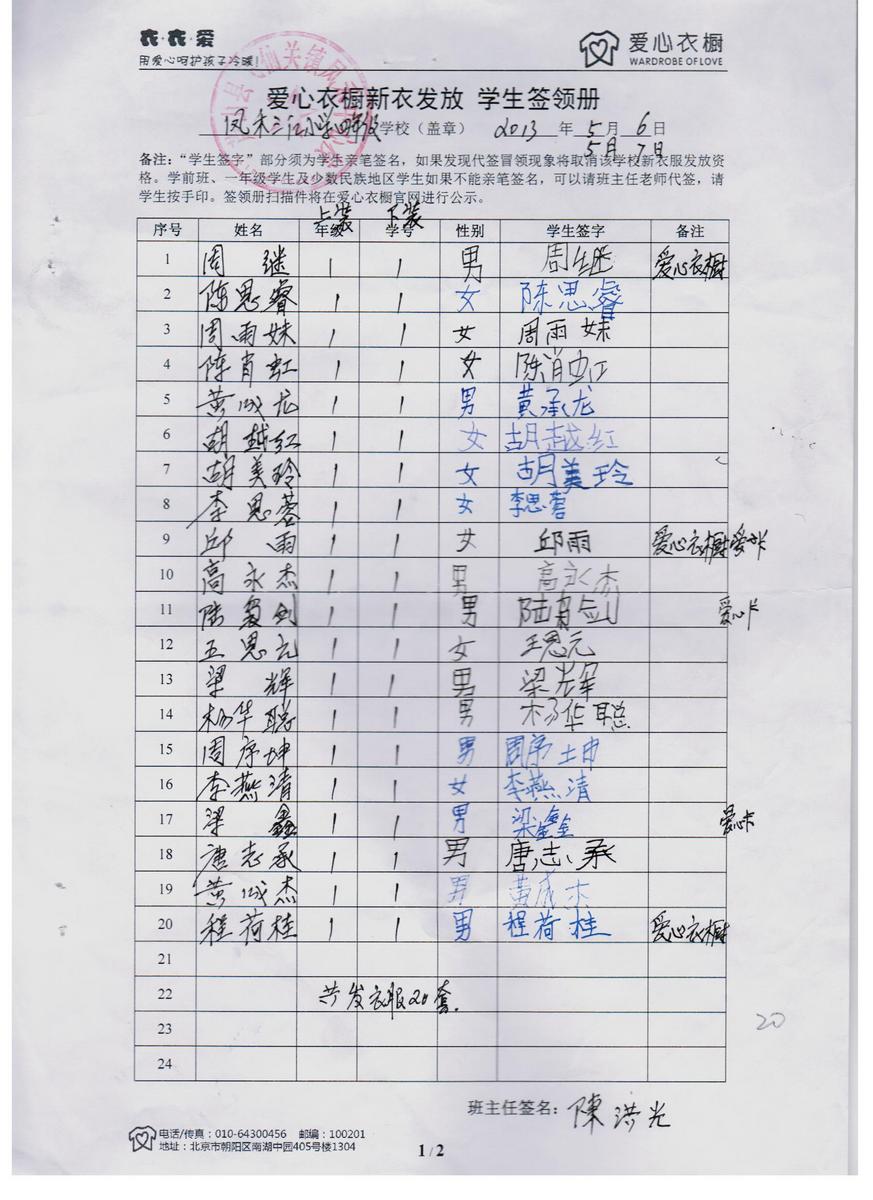 衣·衣·爱
用爱心呵护孩子冷暖!
爱心衣橱
WARDROBE OF LOVE
爱心衣橱新衣发放 学生签领册
凤禾三江小学四年级学校（盖章） 2013 年 5 月 6 日
5月7日
备注：“学生签字”部分须为学生亲笔签名，如果发现代签冒领现象将取消该学校新衣服发放资
格。学前班、一年级学生及少数民族地区学生如果不能亲笔签名，可以请班主任老师代签，请
学生按手印。签领册扫描件将在爱心衣橱官网进行公示。
上装 下装
序号 姓名 年级 学号 性别 学生签字 备注
1 周继 1 1 男 周继 爱心衣橱
2 陈思睿 1 1 女 陈思睿
3 周雨妹 1 1 女 周雨妹
4 陈肖虹 1 1 女 陈肖虹
5 黄成龙 1 1 男 黄承龙
6 胡越红 1 1 女 胡越红
7 胡美玲 1 1 女 胡美玲
8 李思蓉 1 1 女 李思蓉
9 邱雨 1 1 女 邱雨 爱心衣橱爱心卡
10 高永杰 1 1 男 高永杰
11 陆 1 1 男 陆 爱心卡
12 王思元 1 1 女 王思元
13 梁辉 1 1 男 梁辉
14 杨华聪 1 1 男 杨华聪
15 周序坤 1 1 男 周序坤
16 李燕清 1 1 女 李燕清
17 梁鑫 1 1 男 梁鑫 爱心卡
18 唐志承 1 1 男 唐志承
19 黄成杰 1 1 男 黄成杰
20 程荷桂 1 1 男 程荷桂 爱心衣橱
21
22 共发衣服20套.
23
24
20
班主任签名：陳洪光
电话/传真：010-64300456 邮编：100201
地址：北京市朝阳区南湖中园405号楼1304
1 / 2